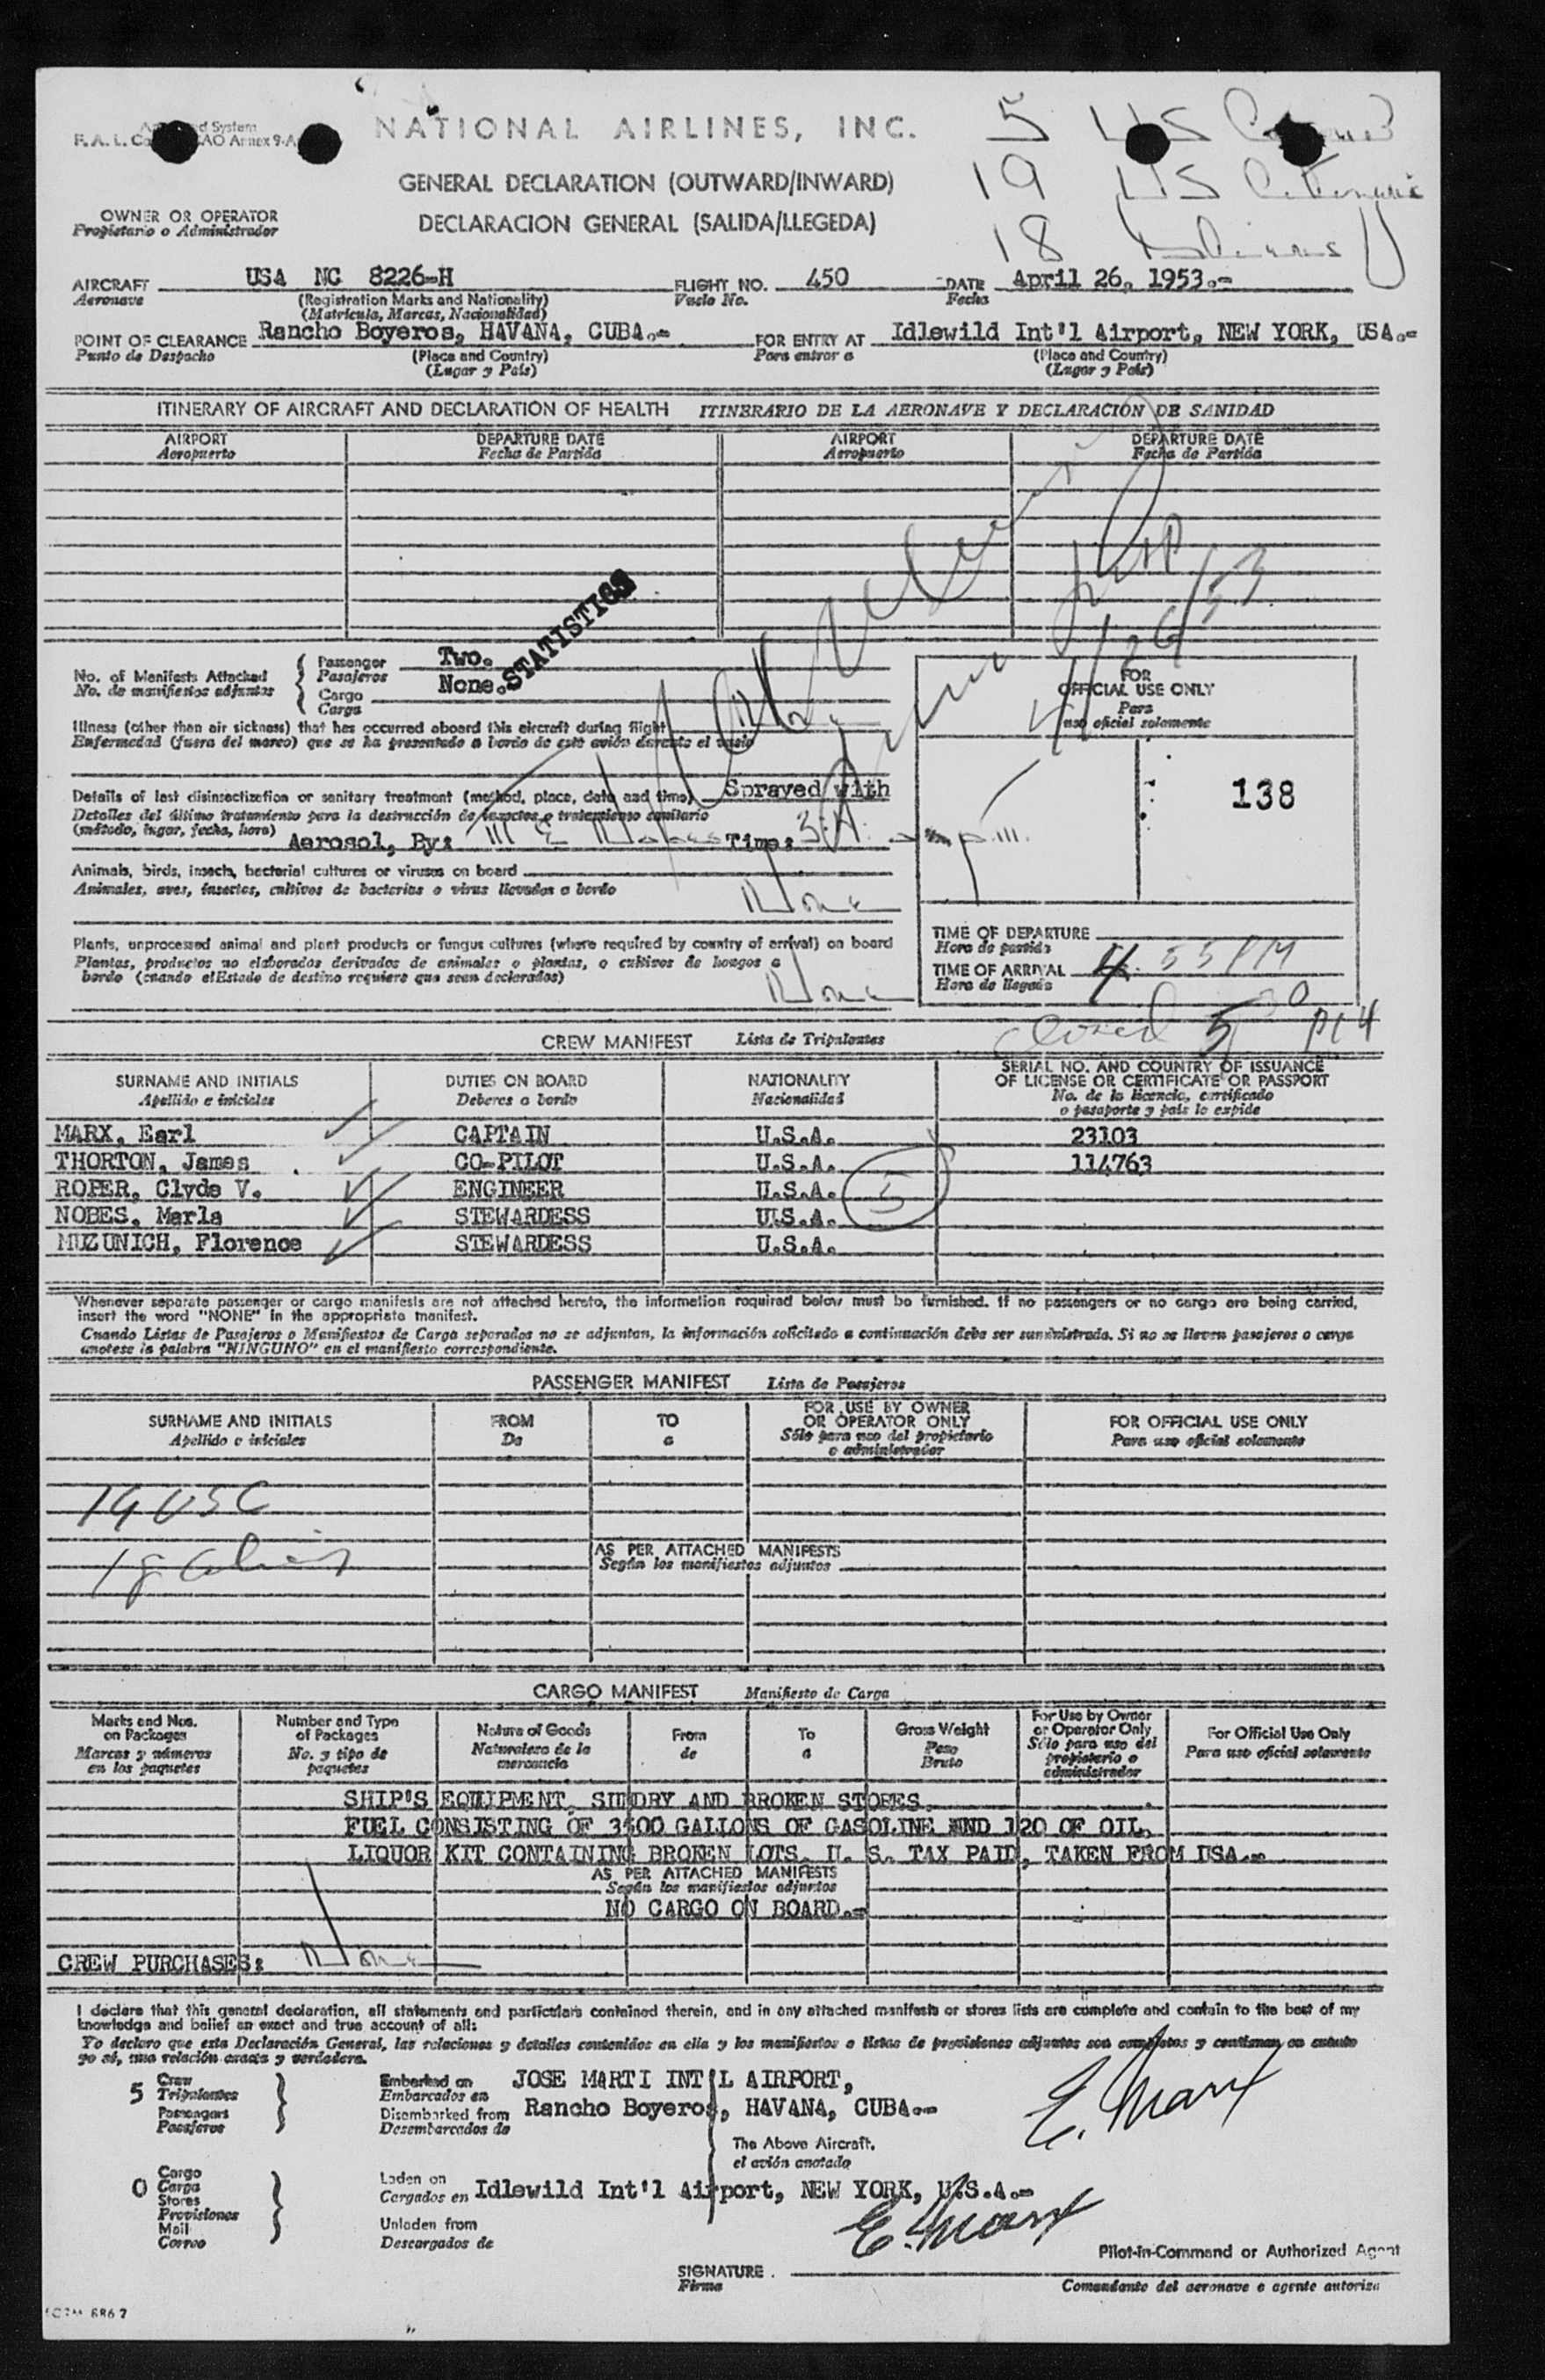 NATIONAL AIRLINES, INC.
5 US
19 US
18
F. A. L. Annex 9-A
GENERAL DECLARATION (OUTWARD/INWARD)
DECLARACION GENERAL (SALIDA/LLEGEDA)
OWNER OR OPERATOR
Propietario o Administrador
AIRCRAFT USA NC 8226-H FLIGHT NO. 450 DATE April 26, 1953.-
Aeronave (Registration Marks and Nationality) Vuelo No. Fecha
(Matrícula, Marcas, Nacionalidad)
POINT OF CLEARANCE Rancho Boyeros, HAVANA, CUBA.- FOR ENTRY AT Idlewild Int'l Airport, NEW YORK, USA.-
Punto de Despacho (Place and Country) Para entrar a (Place and Country)
(Lugar y País) (Lugar y País)
ITINERARY OF AIRCRAFT AND DECLARATION OF HEALTH ITINERARIO DE LA AERONAVE Y DECLARACIÓN DE SANIDAD
AIRPORT DEPARTURE DATE AIRPORT DEPARTURE DATE
Aeropuerto Fecha de Partida Aeropuerto Fecha de Partida
4/26/53
STATISTICS
No. of Manifests Attached Passenger Two.
No. de manifiestos adjuntos Pasajeros
Cargo None.
Carga
Illness (other than air sickness) that has occurred aboard this aircraft during flight None
Enfermedad (fuera del mareo) que se ha presentado a bordo de este avión durante el vuelo
Details of last disinsectization or sanitary treatment (method, place, date and time) Sprayed with
Detalles del último tratamiento para la destrucción de insectos o tratamiento sanitario
(método, lugar, fecha, hora) Aerosol, By: M E Nobes Time:
Animals, birds, insects, bacterial cultures or viruses on board
Animales, aves, insectos, cultivos de bacterias o virus llevados a bordo None
Plants, unprocessed animal and plant products or fungus cultures (where required by country of arrival) on board
Plantas, productos no elaborados derivados de animales o plantas, o cultivos de hongos a
bordo (cuando elEstado de destino requiere que sean declarados) None
FOR
OFFICIAL USE ONLY
Para
uso oficial solamente
138
TIME OF DEPARTURE
Hora de partida
TIME OF ARRIVAL 4:55 PM
Hora de llegada
closed 5 30 PM
CREW MANIFEST Lista de Tripulantes
SURNAME AND INITIALS DUTIES ON BOARD NATIONALITY SERIAL NO. AND COUNTRY OF ISSUANCE
OF LICENSE OR CERTIFICATE OR PASSPORT
Apellido e iniciales Deberes a bordo Nacionalidad No. de la licencia, certificado
o pasaporte y país lo expide
MARX, Earl CAPTAIN U.S.A. 23103
THORTON, James CO-PILOT U.S.A. 114763
ROPER, Clyde V. ENGINEER U.S.A. 5
NOBES, Marla STEWARDESS U.S.A.
MUZUNICH, Florence STEWARDESS U.S.A.
Whenever separate passenger or cargo manifests are not attached hereto, the information required below must be furnished. If no passengers or no cargo are being carried,
insert the word "NONE" in the appropriate manifest.
Cuando Listas de Pasajeros o Manifiestos de Carga separados no se adjuntan, la información solicitada a continuación debe ser suministrada. Si no se llevan pasajeros o carga
anotese la palabra "NINGUNO" en el manifiesto correspondiente.
PASSENGER MANIFEST Lista de Pasajeros
SURNAME AND INITIALS FROM TO FOR USE BY OWNER FOR OFFICIAL USE ONLY
OR OPERATOR ONLY
Apellido e iniciales De a Sólo para uso del propietario Para uso oficial solamente
o administrador
19 USC
18 aliens
AS PER ATTACHED MANIFESTS
Según los manifiestos adjuntos
CARGO MANIFEST Manifiesto de Carga
Marks and Nos. on Packages Number and Type of Packages Nature of Goods From To Gross Weight For Use by Owner or Operator Only For Official Use Only
Marcas y números en los paquetes No. y tipo de paquetes Naturaleza de la mercancía de a Peso Bruto Sólo para uso del propietario o administrador Para uso oficial solamente
SHIP'S EQUIPMENT, SUNDRY AND BROKEN STORES.
FUEL CONSISTING OF 3400 GALLONS OF GASOLINE AND 120 OF OIL.
LIQUOR KIT CONTAINING BROKEN LOTS. U. S. TAX PAID, TAKEN FROM USA.-
AS PER ATTACHED MANIFESTS
Según los manifiestos adjuntos
NO CARGO ON BOARD.-
CREW PURCHASES: None
I declare that this general declaration, all statements and particulars contained therein, and in any attached manifests or stores lists are complete and contain to the best of my
knowledge and belief an exact and true account of all:
Yo declaro que esta Declaración General, las relaciones y detalles contenidos en ella y los manifiestos o listas de provisiones adjuntos son completos y contienen en cuanto
yo sé, una relación exacta y verdadera.
5 Crew Embarked on JOSE MARTI INT'L AIRPORT,
Tripulantes Embarcados en
Passengers Disembarked from Rancho Boyeros, HAVANA, CUBA.-
Pasajeros Desembarcados de
E. Marx
The Above Aircraft.
el avión anotado
0 Cargo Laden on
Carga Cargados en Idlewild Int'l Airport, NEW YORK, U.S.A.-
Stores
Provisiones
Mail Unladen from
Correo Descargados de
E. Marx
Pilot-in-Command or Authorized Agent
SIGNATURE
Firma Comandante del aeronave o agente autoriza
FORM 6867